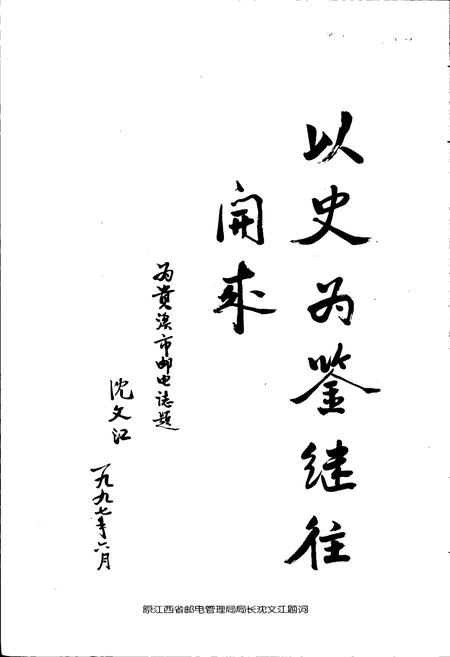 以史为鉴继往
开来
为贵溪市邮电志题
沈文江
一九九七年六月
原江西省邮电管理局局长沈文江题词